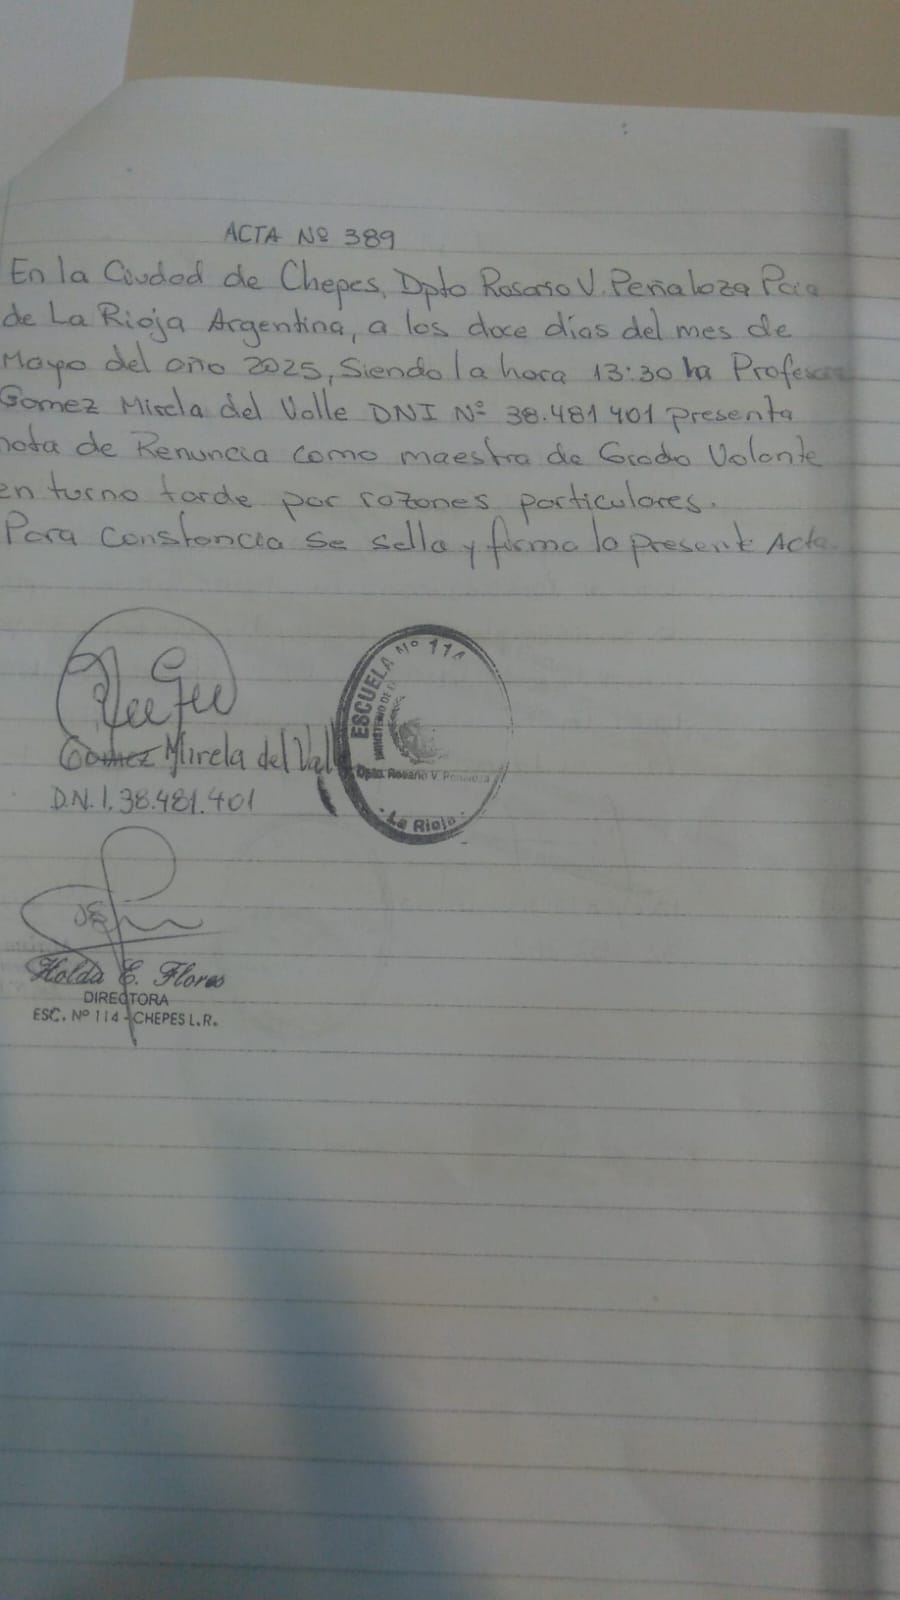 ACTA Nº 389
En la Ciudad de Chepes, Dpto Rosario V. Peñaloza Pcia
de La Rioja Argentina, a los doce días del mes de
Mayo del año 2025, Siendo la hora 13:30 la Profesora
Gomez Mirela del Valle DNI Nº 38.481 401 presenta
nota de Renuncia como maestra de Grado Volante
en turno tarde por razones particulares.
Para constancia se sella y firma la presente Acta.
Gomez Mirela del Valle
D.N.I. 38.481.401
ESCUELA Nº 114
MINISTERIO DE
Dpto. Rosario V. Peñaloza
La Rioja
Holda E. Flores
DIRECTORA
ESC. Nº 114 - CHEPES L.R.